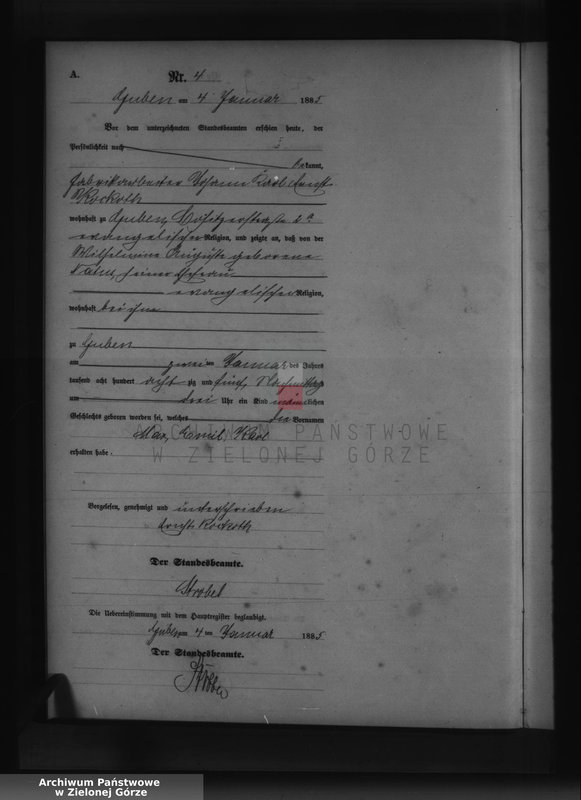 A.
Nr. 4
Guben am 4 Januar 1885
Vor dem unterzeichneten Standesbeamten erschien heute, der
Persönlichkeit nach
bekannt,
Fabrikarbeiter Johann Karl Ernst
Kockoth
wohnhaft zu Guben,
evangelischer Religion, und zeigte an, daß von der
Wilhelmine Auguste geborene
seiner Ehefrau
evangelischer Religion,
wohnhaft bei ihm
zu Guben
am zwei ten Januar des Jahres
tausend acht hundert acht zig und fünf, Nachmittag
um drei Uhr ein Kind männlichen
Geschlechts geboren worden sei, welches die Vornamen
Max, Emil, Karl
erhalten habe.
ARCHIWUM PAŃSTWOWE
W ZIELONEJ GÓRZE
Vorgelesen, genehmigt und unterschrieben
Ernst Kockoth
Der Standesbeamte.
Ströbel
Die Uebereinstimmung mit dem Hauptregister beglaubigt.
Guben am 4 ten Januar 1885
Der Standesbeamte.
Archiwum Państwowe
w Zielonej Górze